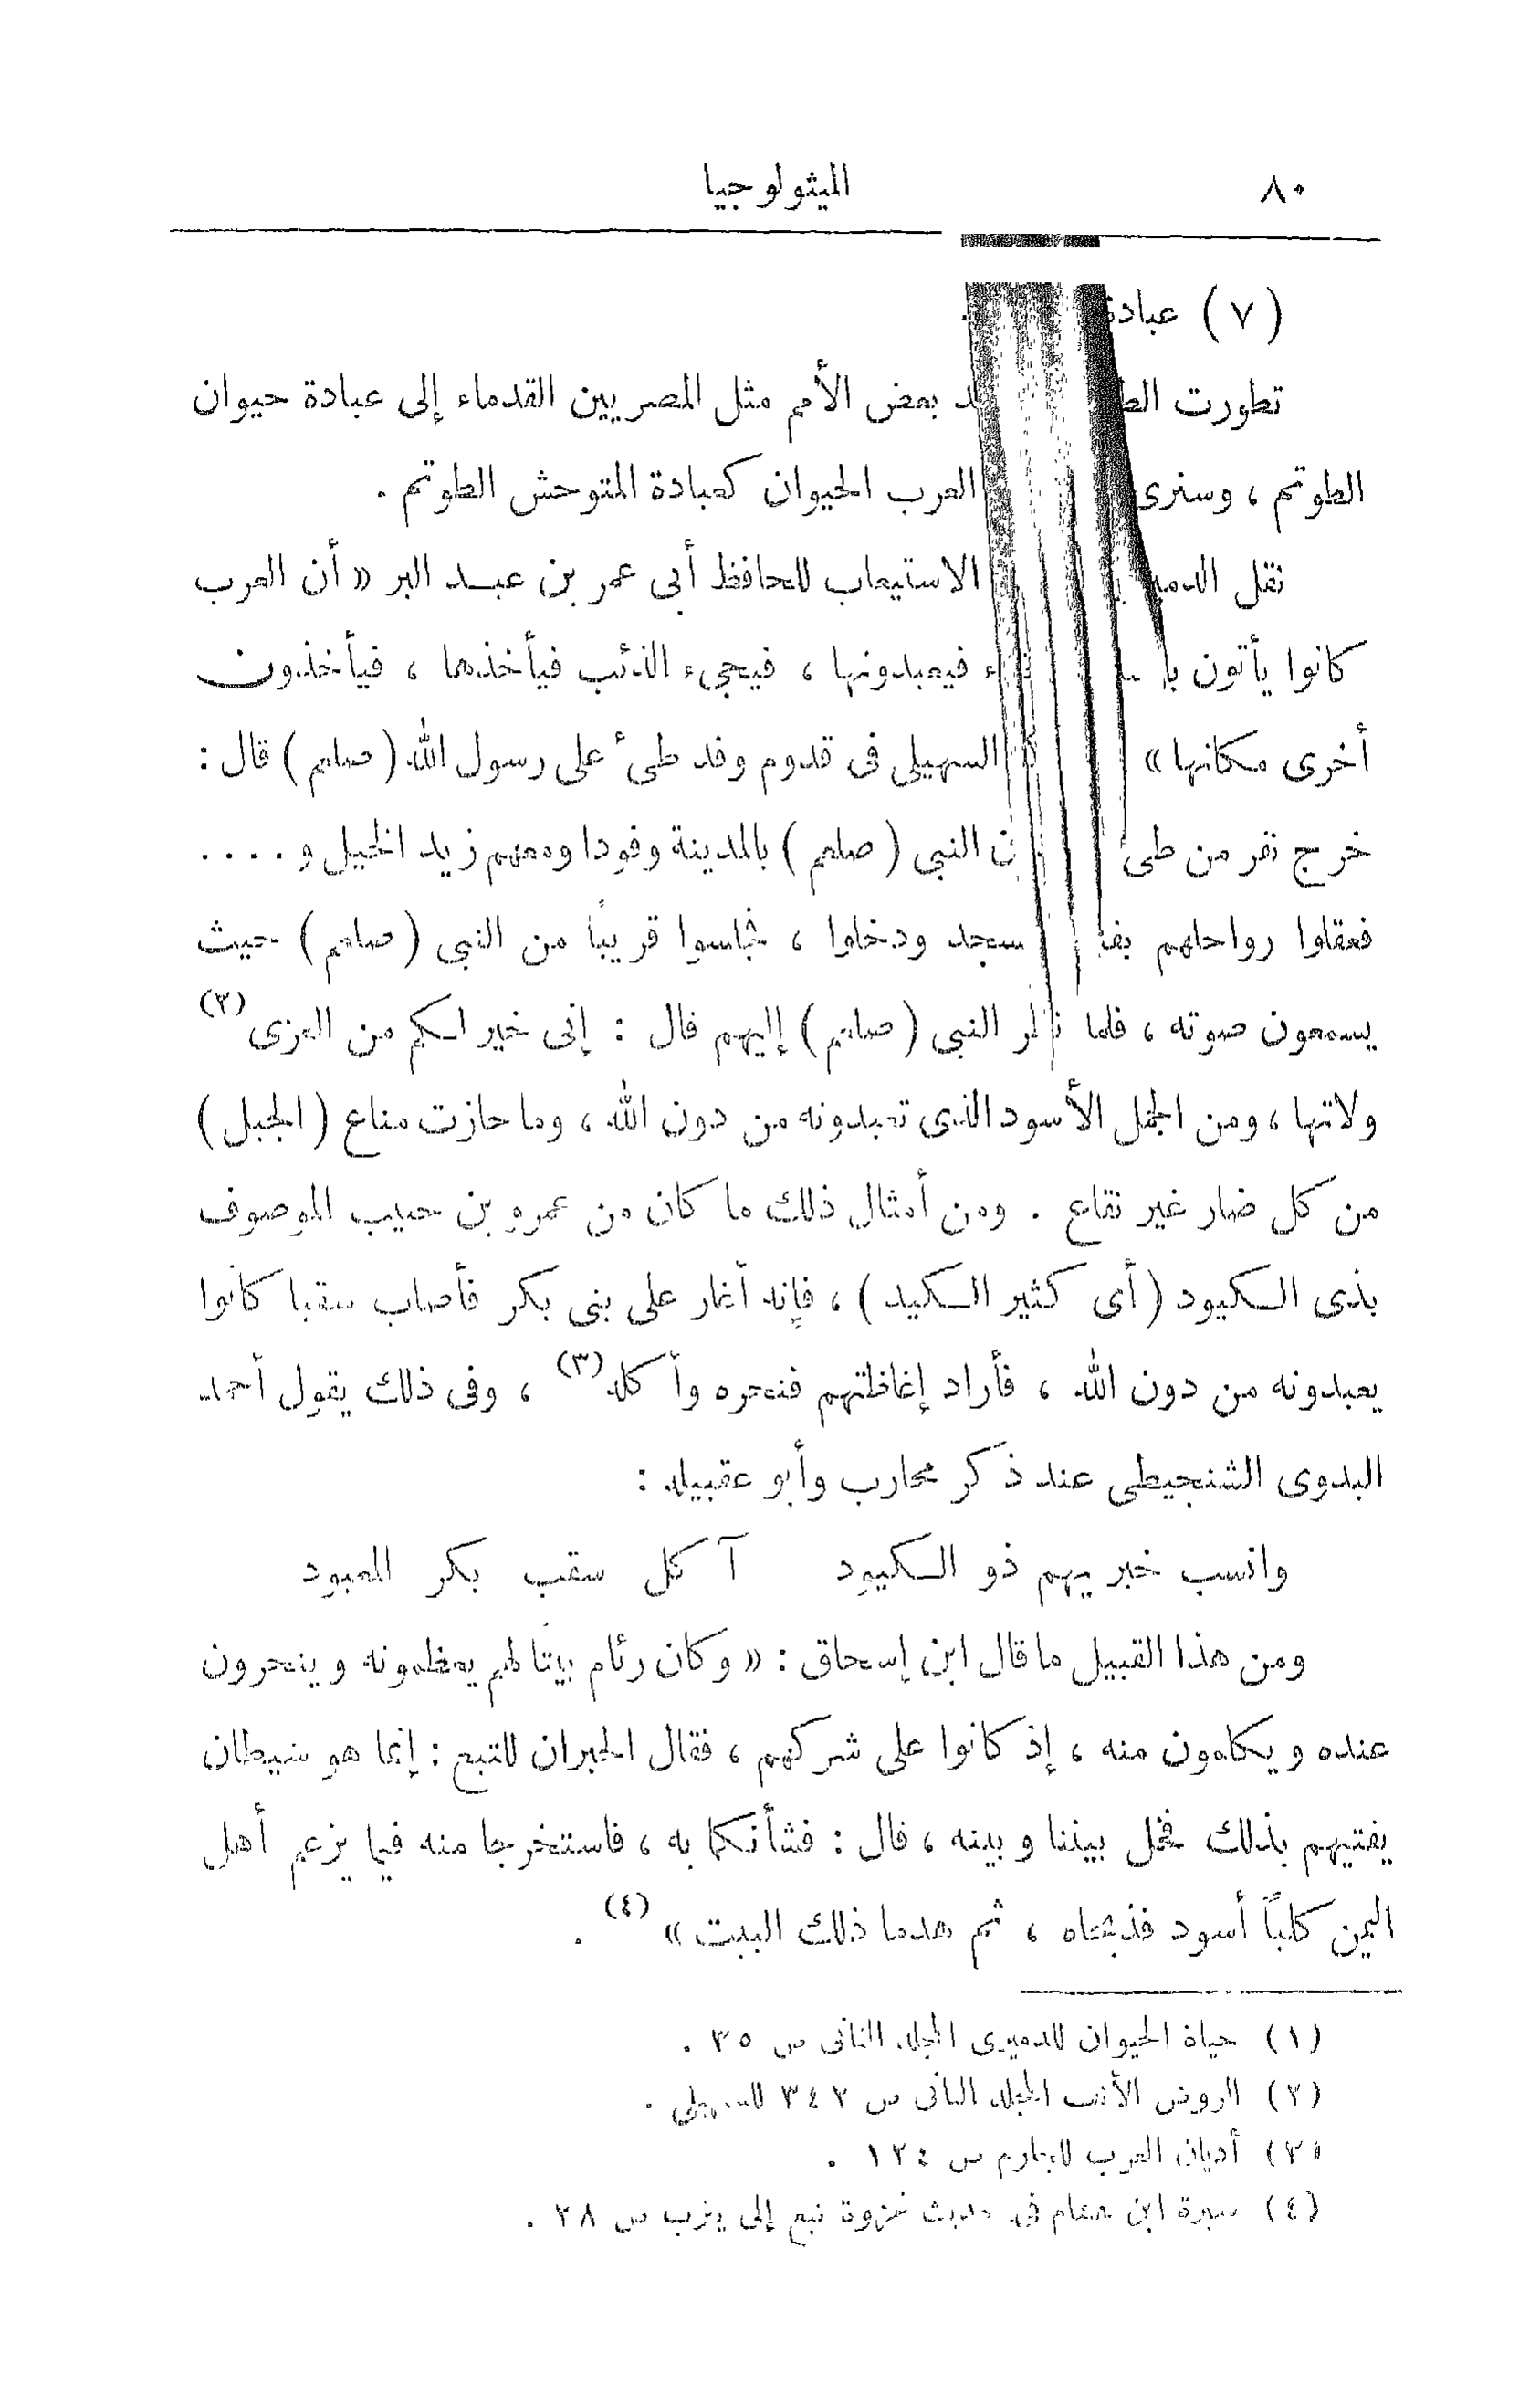 ٨٠ الميثولوجيا
(٧) عبادة
تطورت بعض الأمم مثل المصريين القدماء إلى عبادة حيوان
الطوتم ، وسنرى العرب الحيوان كعبادة المتوحش الطوتم .
نقل الاستيعاب للحافظ أبى عمر بن عبد البر « أن العرب
كانوا يأتون فيعبدونها ، فيجىء الذئب فيأخذها ، فيأخذون
أخرى مكانها » السهيلى فى قدوم وفد طىء على رسول الله (صلعم) قال :
خرج نفر من طى النبى (صلعم) بالمدينة وفودا ومعهم زيد الخيل و ....
فعقلوا رواحلهم ودخلوا ، فجلسوا قريباً من النبى (صلعم) حيث
يسمعون صوته ، فلما النبى (صلعم) إليهم قال : إنى خير لكم من العزى (٢)
ولاتها ، ومن الجمل الأسود الذى تعبدونه من دون الله ، وما حازت مناع (الجبل)
من كل ضار غير نفاع . ومن أمثال ذلك ما كان من عمرو بن حبيب الموصوف
بذى الكيود (أى كثير الكيد) ، فإنه أغار على بنى بكر فأصاب سقبا كانوا
يعبدونه من دون الله ، فأراد إغاظتهم فنحره وأكله (٣) ، وفى ذلك يقول أحمد
البدوى الشنجيطى عند ذكر محارب وأبو عقبيله :
وانسب خبر يهم ذو الكيود آكل سقب بكر المعبود
ومن هذا القبيل ما قال ابن إسحاق : « وكان رئام بيتا لهم يعظمونه وينحرون
عنده ويكلمون منه ، إذ كانوا على شركهم ، فقال الحبران لتبع : إنما هو شيطان
يفتيهم بذلك فخل بيننا وبينه ، قال : فشأنكما به ، فاستخرجا منه فيما يزعم أهل
اليمن كلباً أسود فذبحاه ، ثم هدما ذلك البيت » (٤) .
(١) حياة الحيوان للدميرى المجلد الثانى ص ٣٥ .
(٢) الروض الأنف المجلد الثانى ص ٣٤٢ للسهيلى .
(٣) أديان العرب للجارم ص ١٢٤ .
(٤) سيرة ابن هشام فى حديث غزوة تبع إلى يثرب ص ٢٨ .